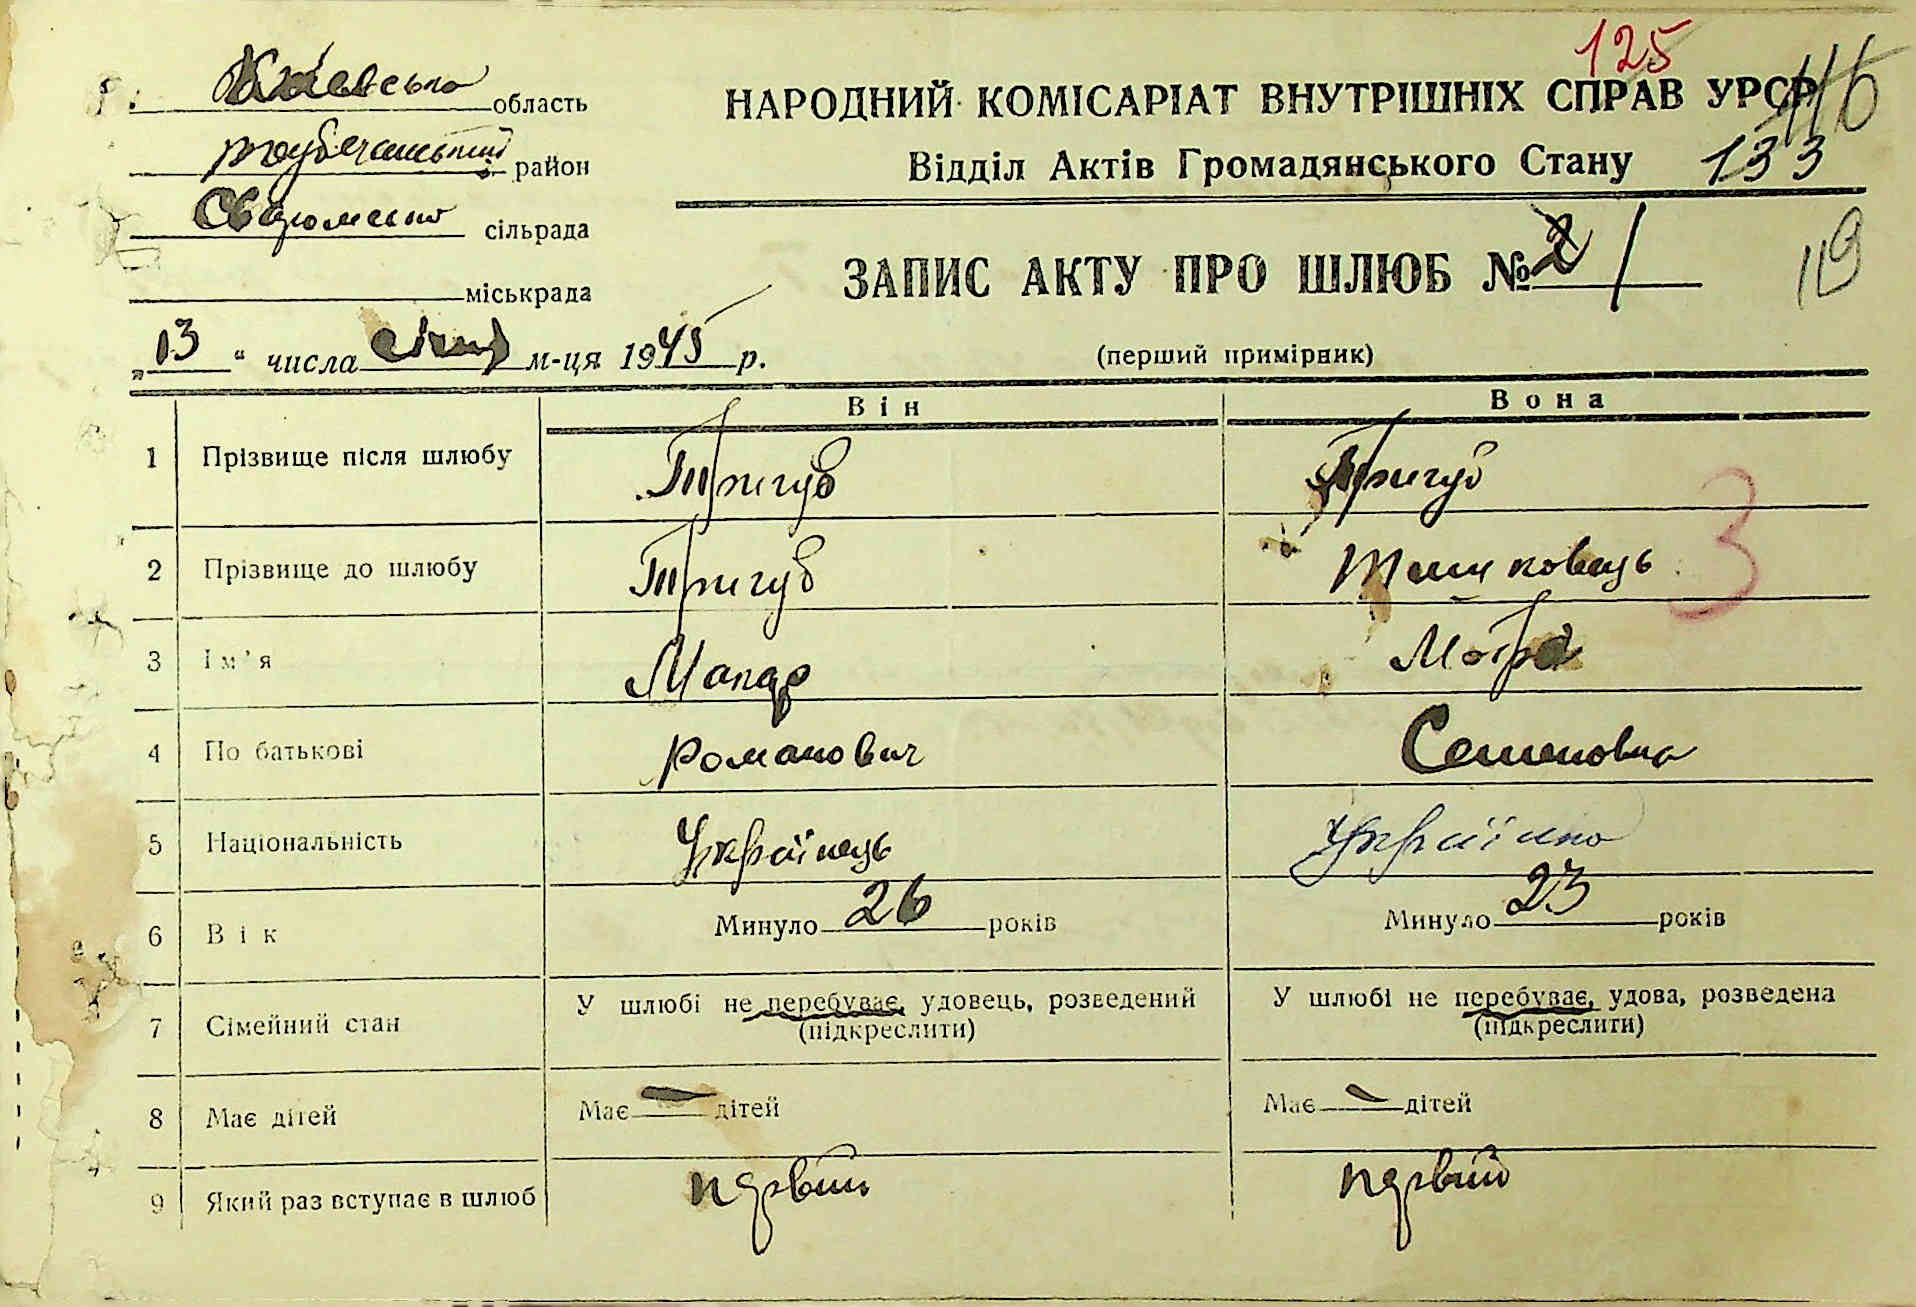 125
116
Київська область
НАРОДНИЙ КОМІСАРІАТ ВНУТРІШНІХ СПРАВ УРСР
район
Відділ Актів Громадянського Стану 133
сільрада
ЗАПИС АКТУ ПРО ШЛЮБ № 2 1
119
міськрада
„13“ числа січня м-ця 1945 р.
(перший примірник)
Він Вона
1 Прізвище після шлюбу Тригуб Тригуб
2 Прізвище до шлюбу Тригуб
3
3 Ім'я Макар Мотра
4 По батькові Романович Семеновна
5 Національність Українець Українка
6 Вік Минуло 26 років Минуло 23 років
7 Сімейний стан У шлюбі не перебуває, удовець, розведений У шлюбі не перебуває, удова, розведена
(підкреслити) (підкреслити)
8 Має дітей Має — дітей Має — дітей
9 Який раз вступає в шлюб первий первий